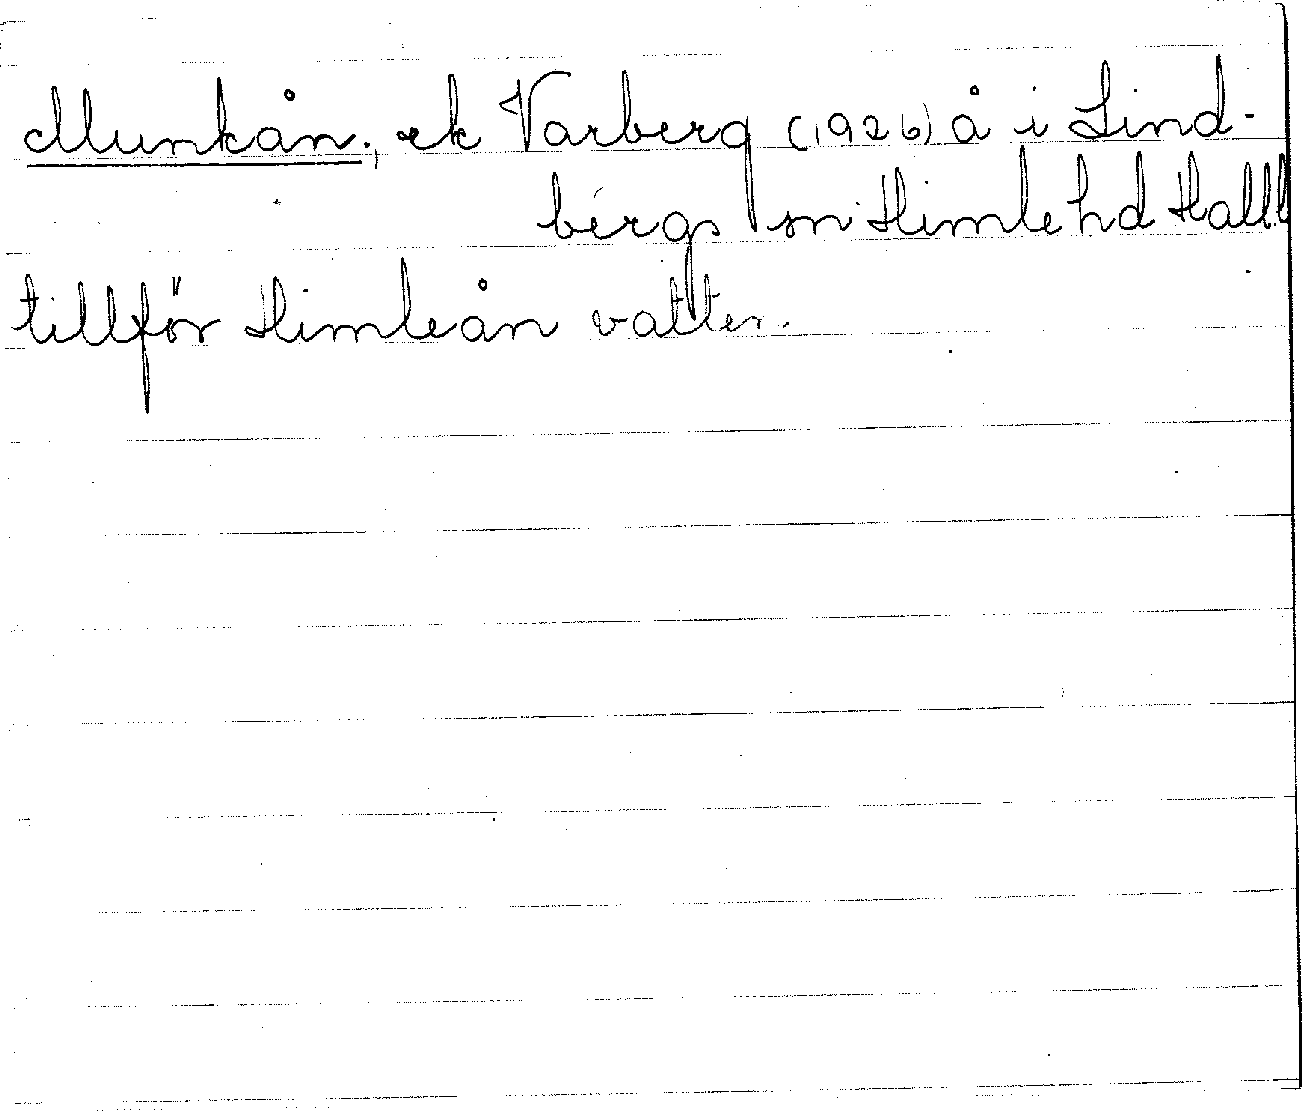 Munkån., ek Varberg (1926) å i Lind-
bergs sn Himle hd Hall.l
tillför Himleån vatten.